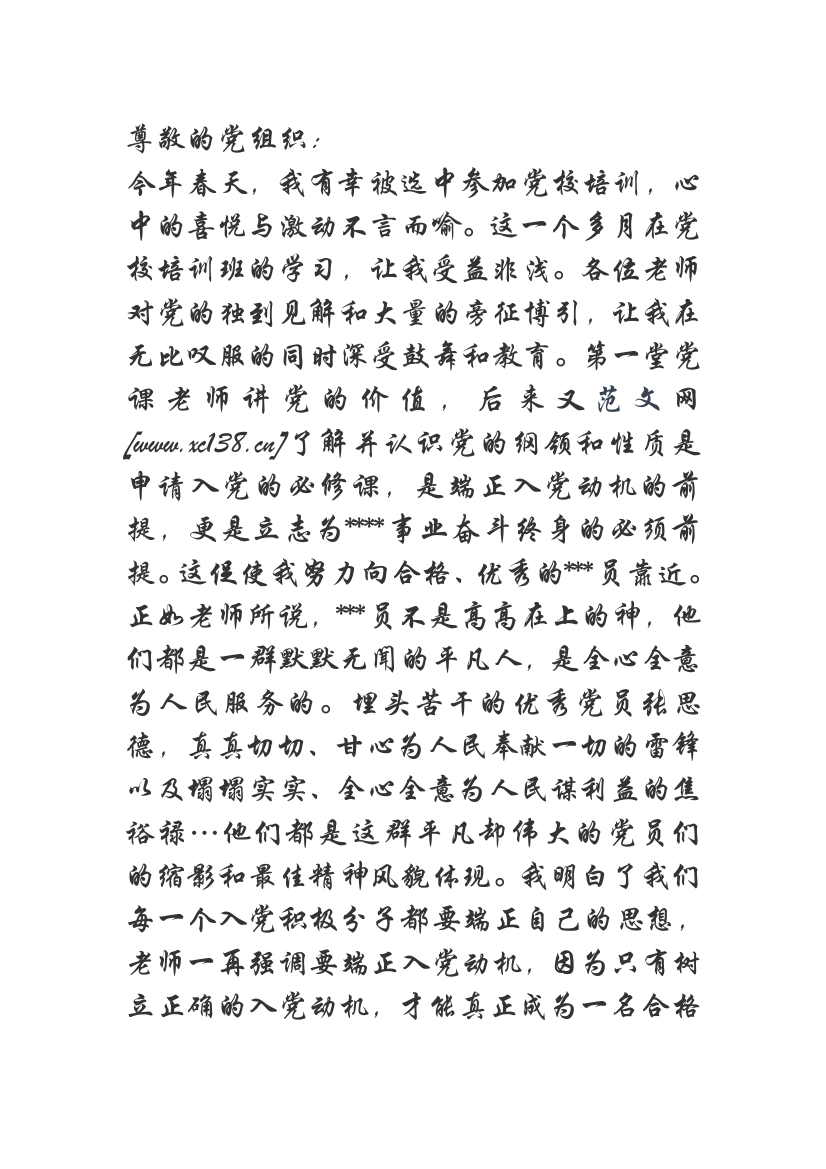 尊敬的党组织：
今年春天，我有幸被选中参加党校培训，心
中的喜悦与激动不言而喻。这一个多月在党
校培训班的学习，让我受益非浅。各位老师
对党的独到见解和大量的旁征博引，让我在
无比叹服的同时深受鼓舞和教育。第一堂党
课老师讲党的价值，后来又范文网
[www.xc138.cn]了解并认识党的纲领和性质是
申请入党的必修课，是端正入党动机的前
提，更是立志为****事业奋斗终身的必须前
提。这促使我努力向合格、优秀的***员靠近。
正如老师所说，***员不是高高在上的神，他
们都是一群默默无闻的平凡人，是全心全意
为人民服务的。埋头苦干的优秀党员张思
德，真真切切、甘心为人民奉献一切的雷锋
以及塌塌实实、全心全意为人民谋利益的焦
裕禄…他们都是这群平凡却伟大的党员们
的缩影和最佳精神风貌体现。我明白了我们
每一个入党积极分子都要端正自己的思想，
老师一再强调要端正入党动机，因为只有树
立正确的入党动机，才能真正成为一名合格